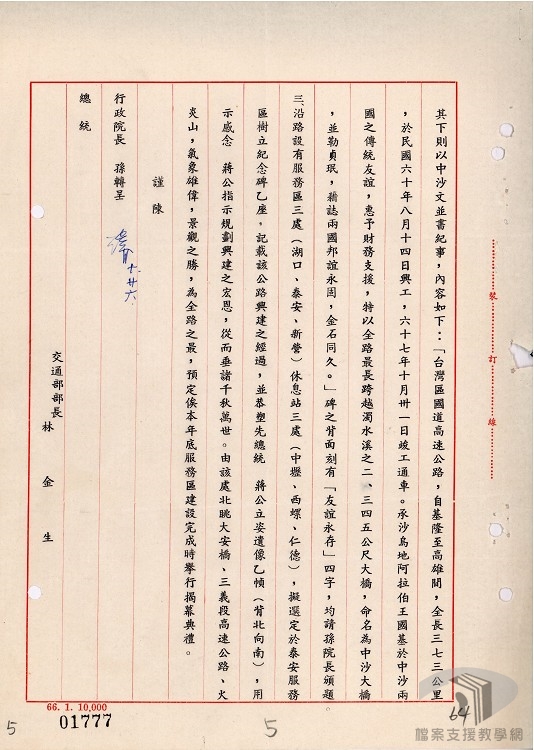 其下則以中沙文並書紀事，內容如下：「台灣區國道高速公路，自基隆至高雄間，全長三七三公里
，於民國六十年八月十四日興工，六十七年十月卅一日竣工通車。承沙烏地阿拉伯王國基於中沙兩
國之傳統友誼，惠予財務支援，特以全路最長跨越濁水溪之二、三四五公尺大橋，命名為中沙大橋
，並勒貞珉，藉誌兩國邦誼永固，金石同久。」碑之背面刻有「友誼永存」四字，均請孫院長頒題。
三、沿路設有服務區三處（湖口、泰安、新營）休息站三處（中壢、西螺、仁德），擬選定於泰安服務
區樹立紀念碑乙座，記載該公路興建之經過，並恭塑先總統　蔣公立姿遺像乙幀（背北向南），用
示感念　蔣公指示規劃興建之宏恩，從而垂諸千秋萬世。由該處北眺大安橋、三義段高速公路、火
炎山，氣象雄偉，景觀之勝，為全路之最，預定俟本年底服務區建設完成時舉行揭幕典禮。
謹陳
行政院長　孫轉呈
總統
交通部部長　林　金　生
十、廿六
裝訂線
66. 1. 10,000
01777
5
5
64
檔案支援教學網